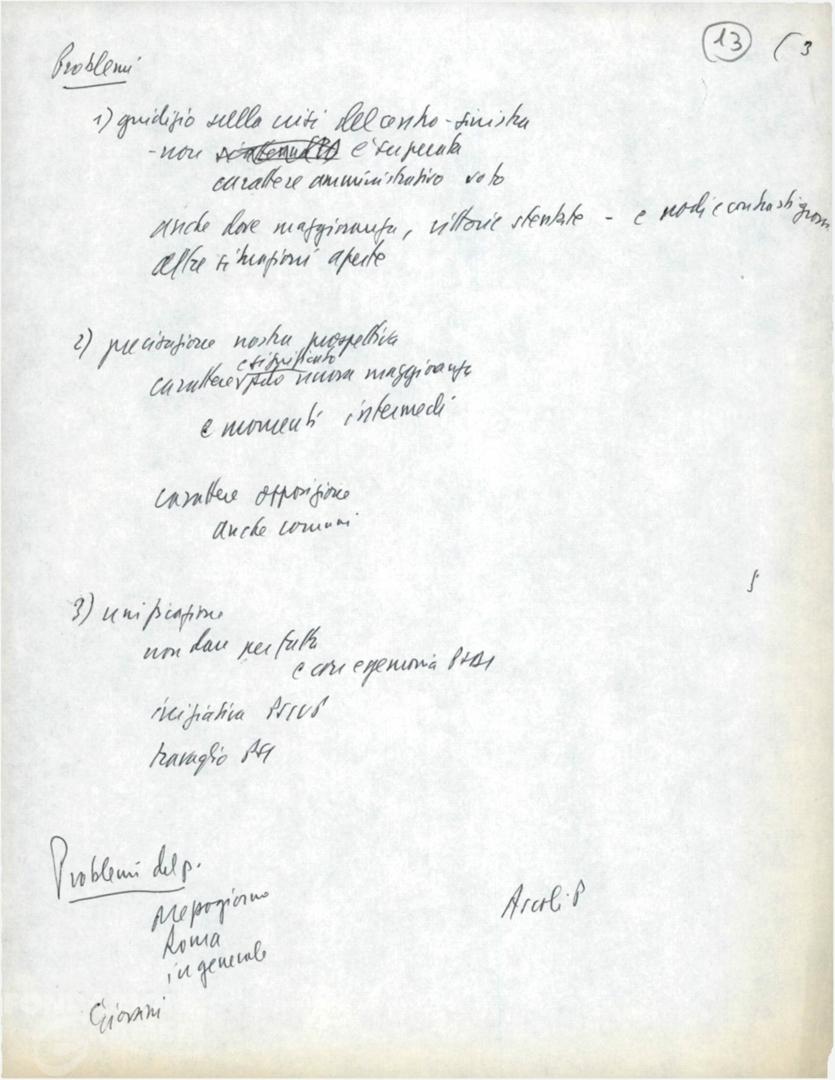 13 ( 3
Problemi
1) giudizio sulla crisi del centro-sinistra
- non è superata
carattere amministrativo voto
anche dove maggioranza, vittorie stentate - e nodi e contrasti grossi
altre situazioni aperte
2) precisazione nostra prospettiva
e significato
carattere nuova maggioranza
e momenti intermedi
carattere opposizione
anche comuni
3) unificazione
non dare per fatta
e con egemonia PSDI
iniziativa PSIUP
travaglio PSI
Problemi del p.
Mezzogiorno
Roma
in generale
Ascoli P
Giovani